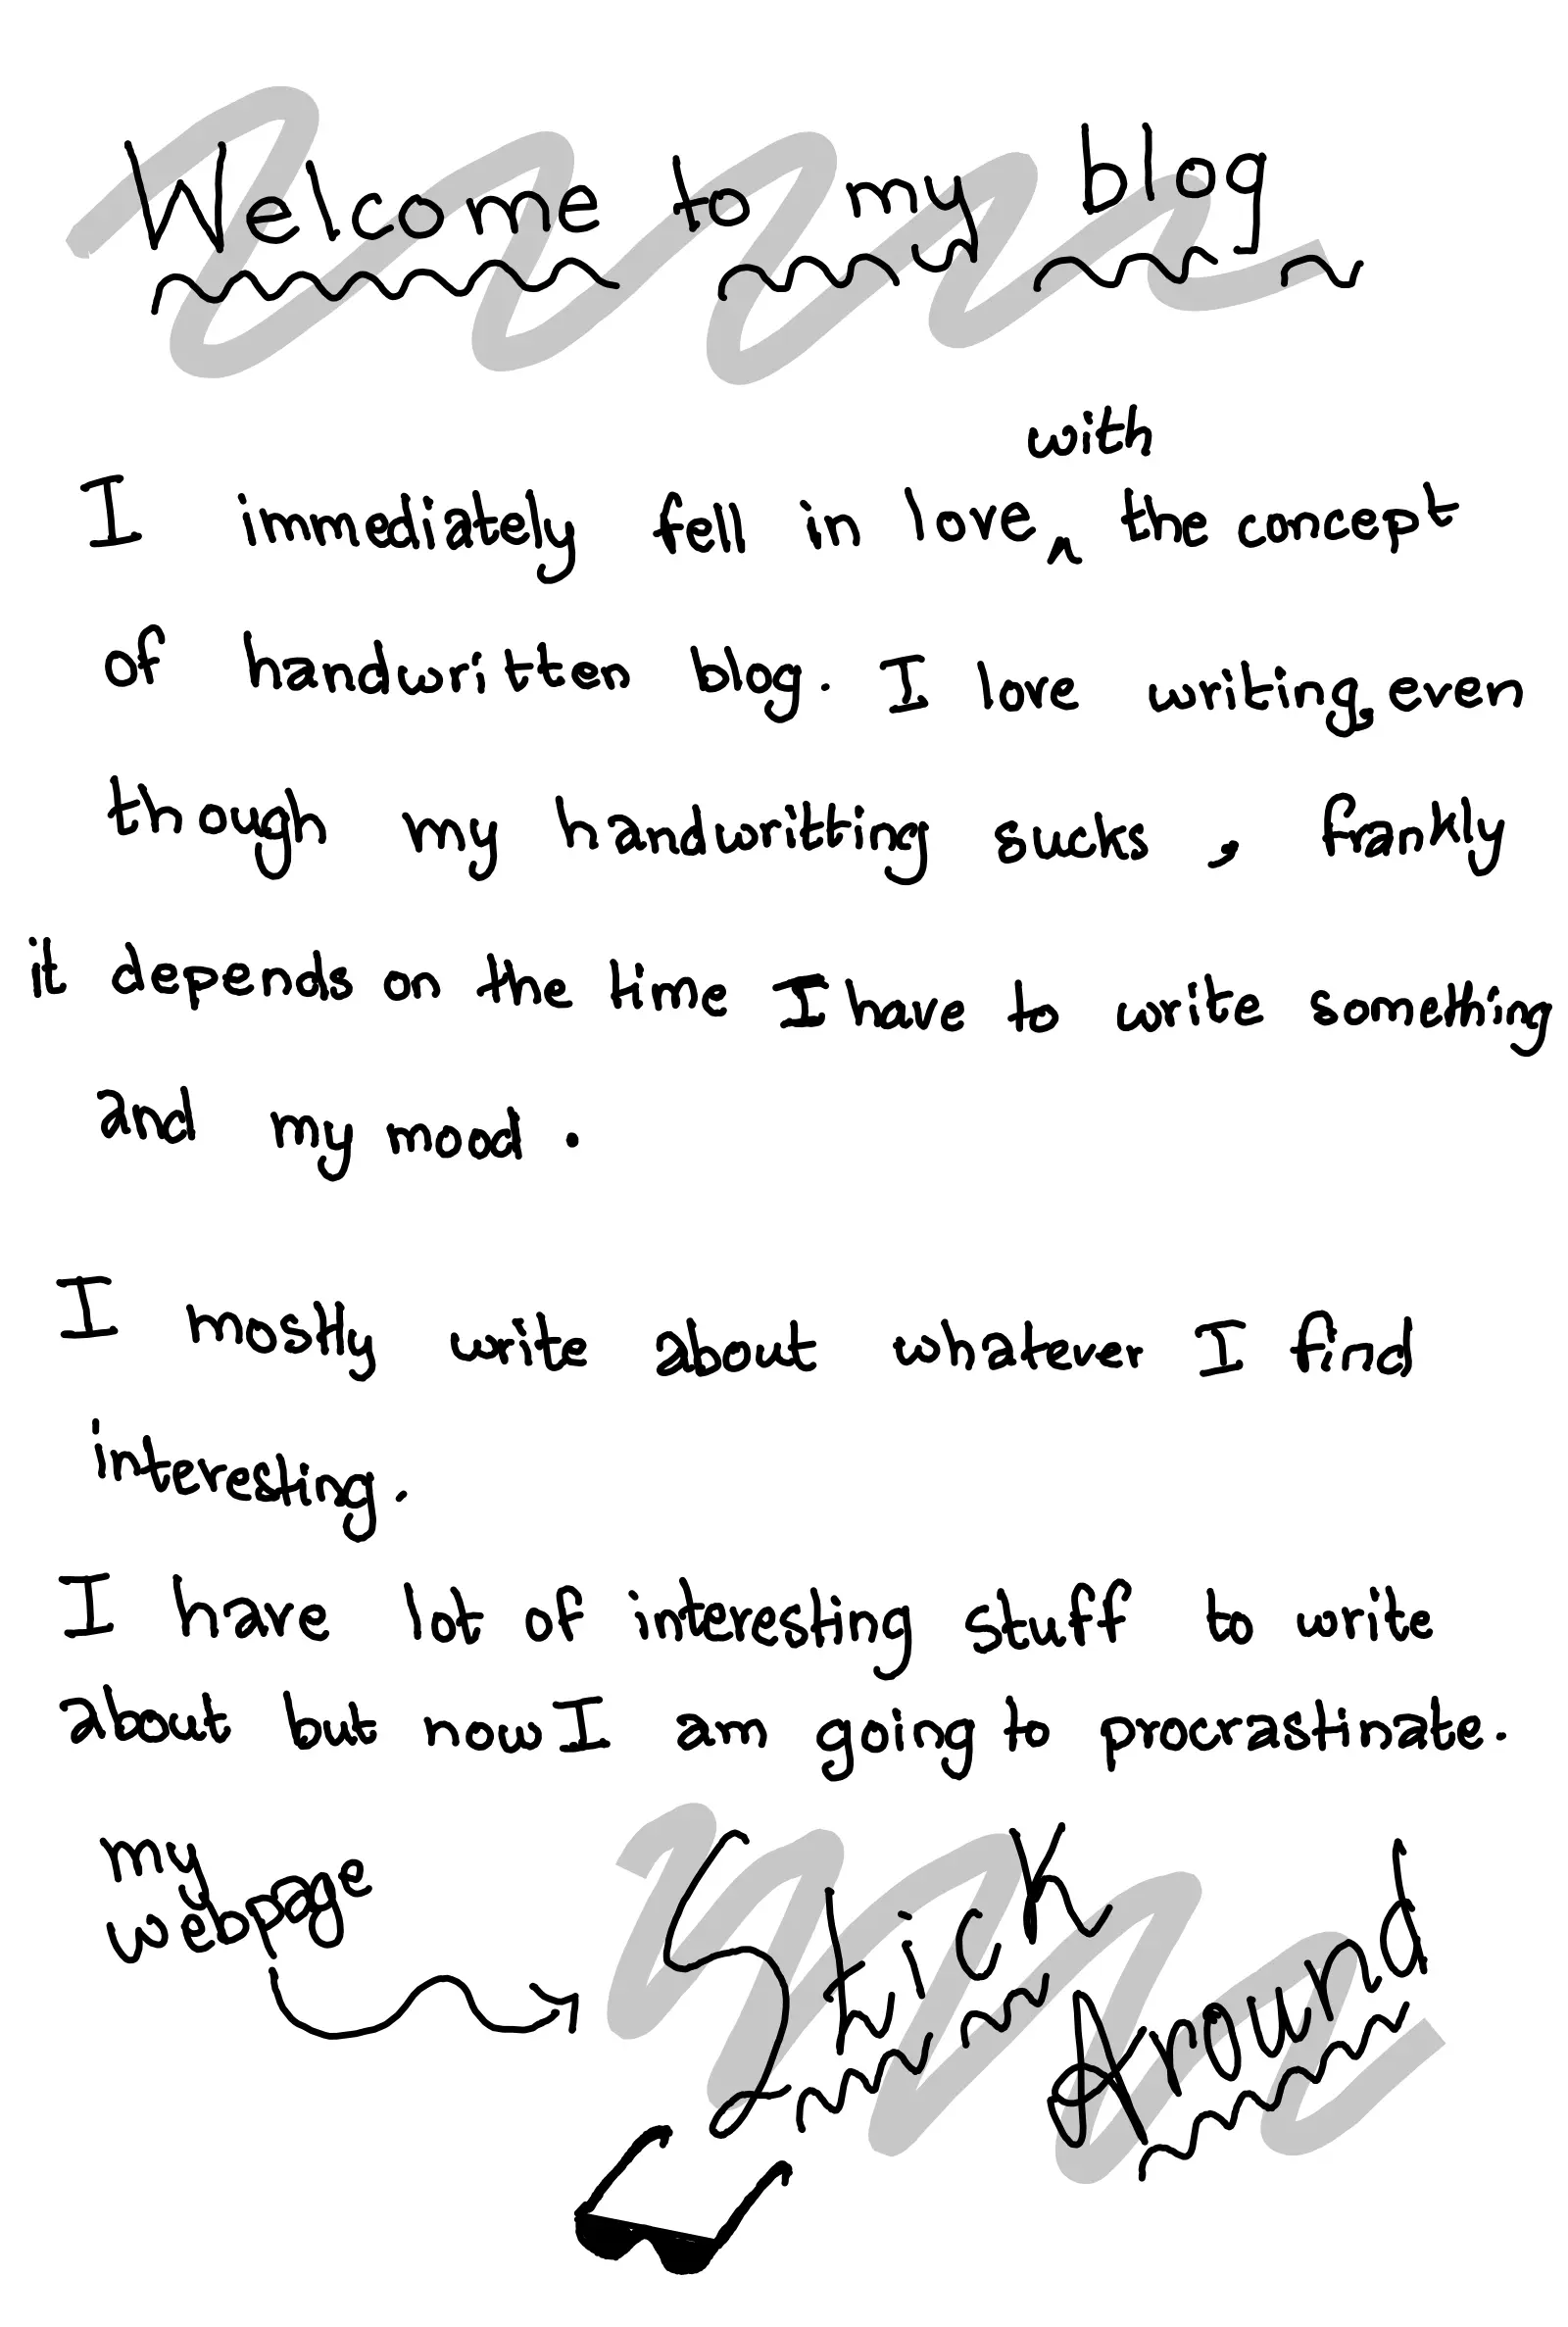 Welcome to my blog
I immediately fell in love with the concept
of handwritten blog. I love writing, even
though my handwritting sucks, frankly
it depends on the time I have to write something
and my mood.
I mostly write about whatever I find
interesting.
I have lot of interesting stuff to write
about but now I am going to procrastinate.
my
webpage
Stick
Around